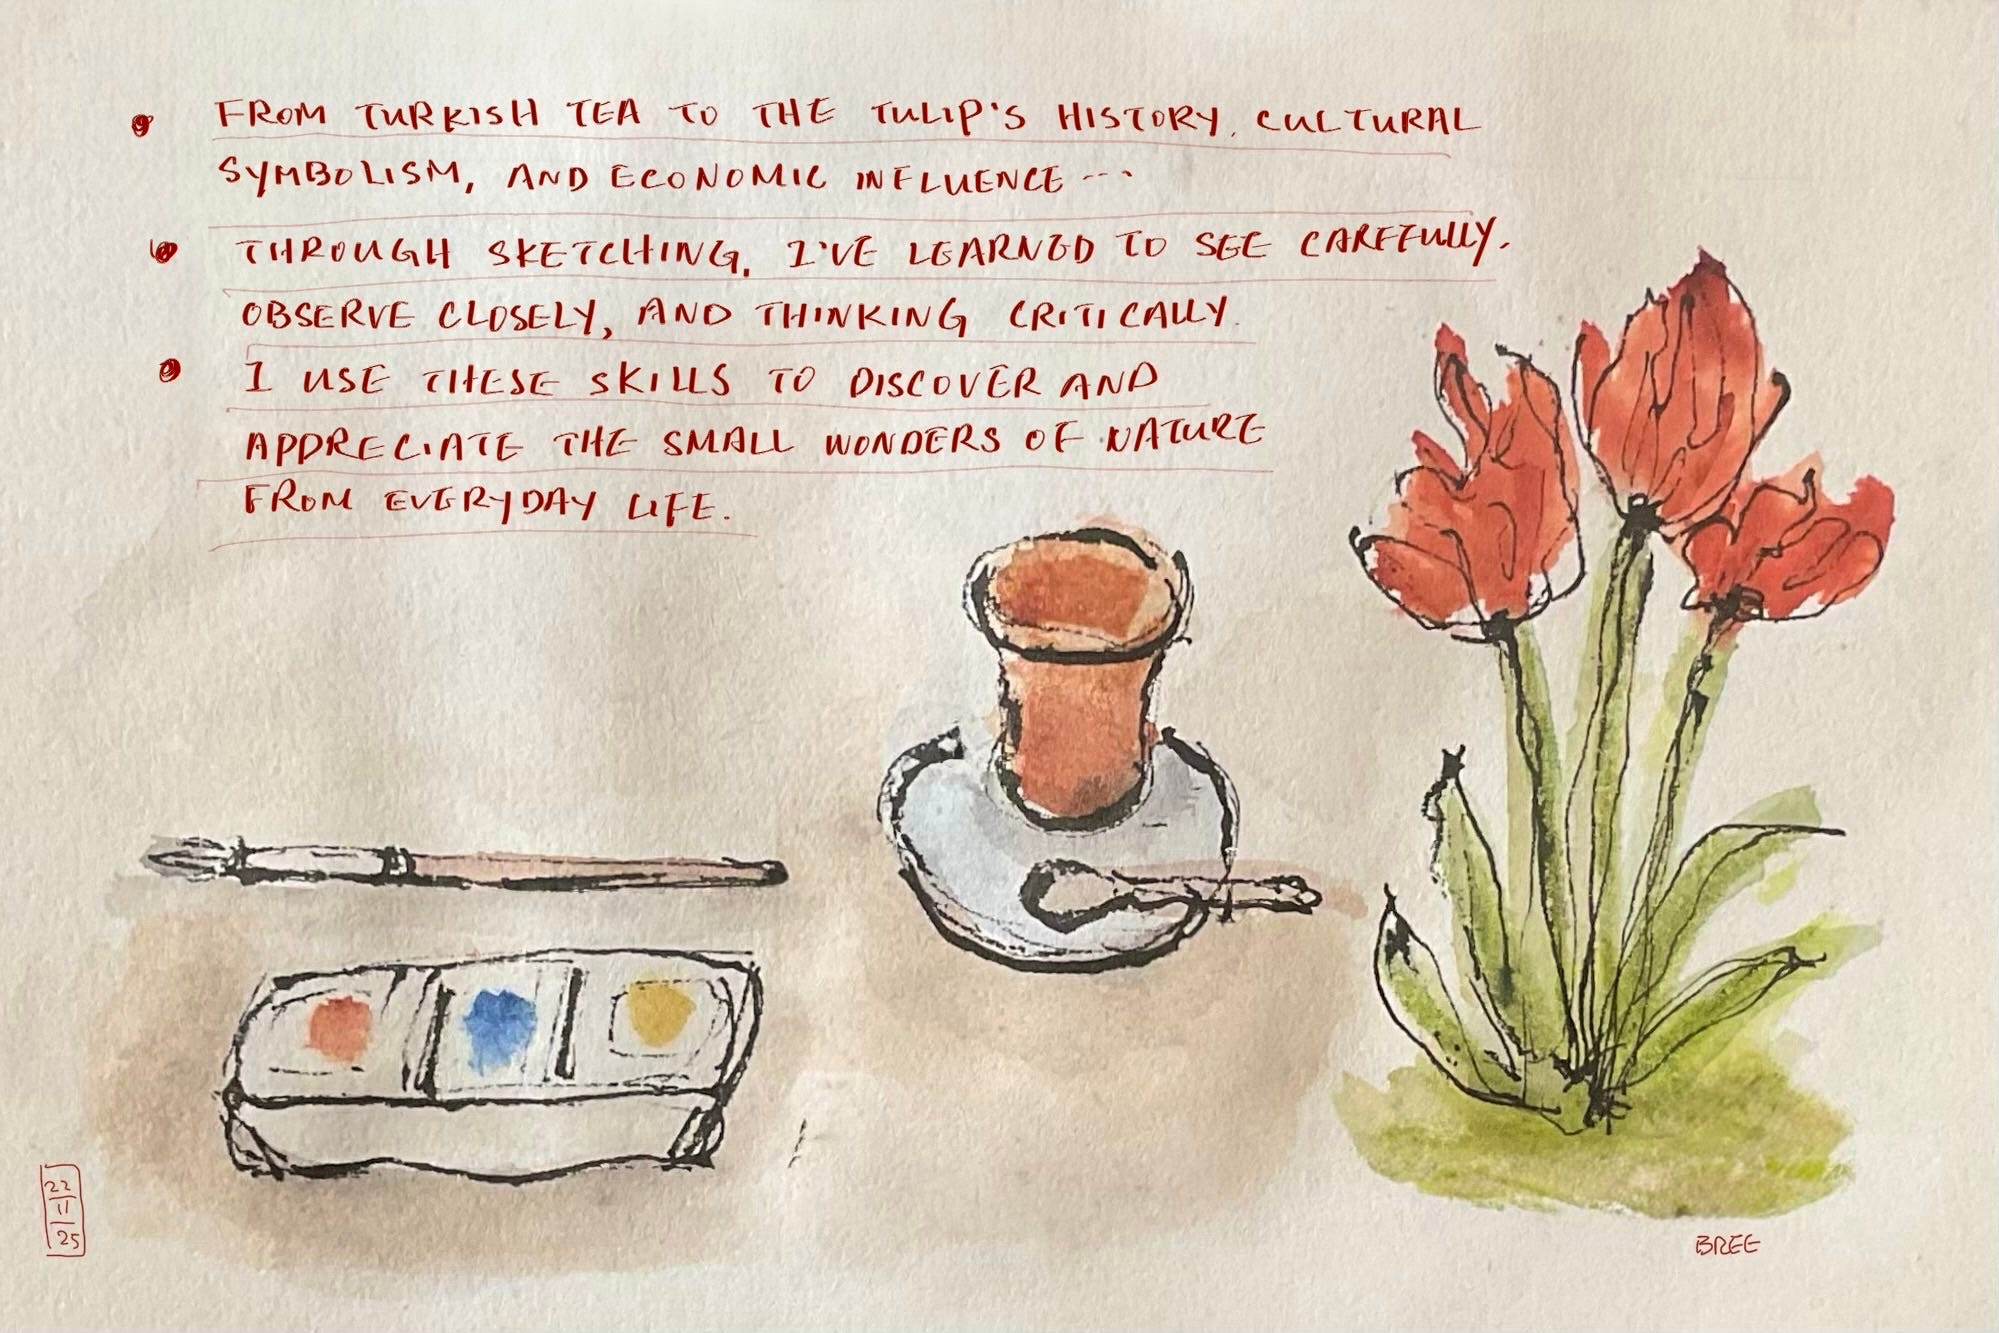 FROM TURKISH TEA TO THE TULIP'S HISTORY, CULTURAL
SYMBOLISM, AND ECONOMIC INFLUENCE...
THROUGH SKETCHING, I'VE LEARNED TO SEE CAREFULLY.
OBSERVE CLOSELY, AND THINKING CRITICALLY.
I USE THESE SKILLS TO DISCOVER AND
APPRECIATE THE SMALL WONDERS OF NATURE
FROM EVERYDAY LIFE.
22
11
25
BREE